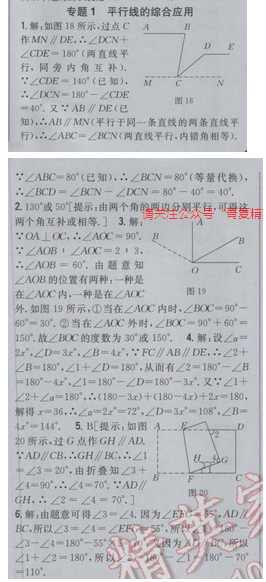 专题1 平行线的综合应用
1. 解:如图18所示,过点C
作MN∥DE,∴∠DCN+
∠CDE=180°(两直线平
行,同旁内角互补).
∵∠CDE=140°(已知),
∴∠DCN=180°-∠CDE
=40°. 又∵AB∥DE(已
知),∴AB∥MN(平行于同一条直线的两条直线平
行),∴∠ABC=∠BCN(两直线平行,内错角相等).
A
B
D
E
M
C
N
图18
∵∠ABC=80°(已知),∴∠BCN=80°(等量代换),
∴∠BCD=∠BCN-∠DCN=80°-40°=40°.
2. 130°或50°[提示:由两个角的两边分别平行,可得这
两个角互补或相等.] 3. 解:
∵OA⊥OC,∴∠AOC=90°.
∵∠AOB∶∠AOC=2∶3,
∴∠AOB=60°. 由题意知
∠AOB的位置有两种:一种是
在∠AOC内,一种是在∠AOC
外. 如图19所示,①当在∠AOC内时,∠BOC=90°-
60°=30°. ②当在∠AOC外时,∠BOC=90°+60°=
150°. 故∠BOC的度数为30°或150°. 4. 解:设∠α=
2x°,∠D=3x°,∠B=4x°. ∵FC∥AB∥DE,∴∠2+
∠B=180°,∠1+∠D=180°,从而有∠2=180°-∠B
=180°-4x°,∠1=180°-∠D=180°-3x°. 又∵∠1+
∠2+∠α=180°,∴(180-3x)+(180-4x)+2x=180,
解得x=36,∴∠α=2x°=72°,∠D=3x°=108°,∠B=
4x°=144°. 5. B[提示:如图
20所示,过G点作GH∥AD.
∵AD∥CB,∴GH∥BC,∴∠1
=∠3=20°,由折叠知∠3+
∠4=90°,∴∠4=70°. ∵AD∥
GH,∴∠2=∠4=70°.]
请关注公众号
A
B
B
O
C
图19
A
D
H
G
B
F
C
图20
6. 解:由题意可得∠3=∠4. 因为∠EFG=55°,AD∥
BC,所以∠3=∠4=∠EFG=55°,所以∠1=180°-
∠3-∠4=180°-55°×2=70°. 又因为AD∥BC,所以
∠1+∠2=180°,所以∠2=180°-∠1=180°-70°
=110°.